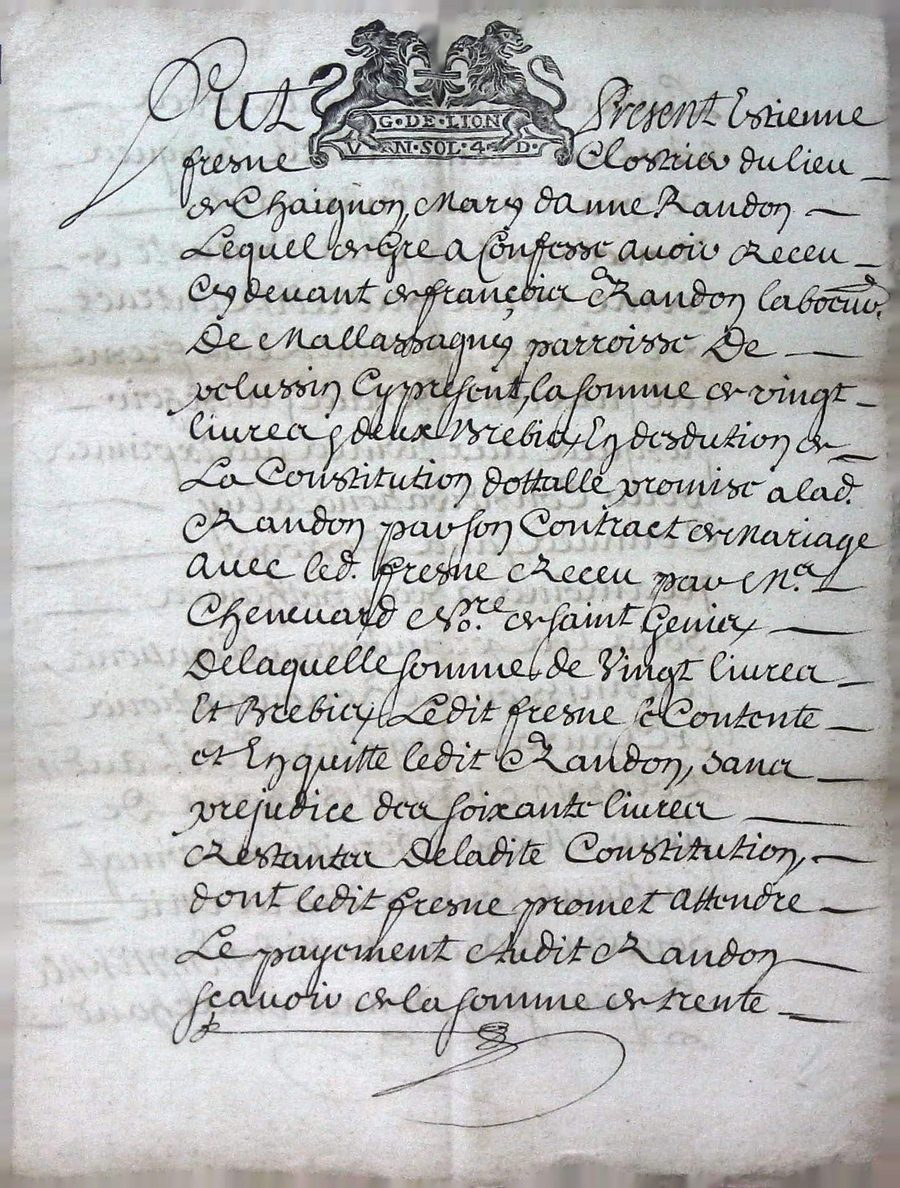 G·DE·LION
VN·SOL·4·D·
Fut Present Estienne
fresne Clostrier du lieu
de Chaignon, Mary danne Randon
Lequel de Gre a Confesse avoir Receu
Cy devant de françois Randon laboeur.
De Mallassagny parroisse De
pelussin Cy present, la somme de vingt
livres & deux Brebis, En desdution de
La Constitution dottalle promise a lad.
Randon par son Contract de Mariage
Avec led. fresne Receu par Me.
Chenevard No.re de saint Genis
Delaquelle somme de Vingt livres
Et Brebis, Ledit fresne se Contente
et En quitte ledit Randon, sans
prejudice des soixante livres
Restantes Deladite Constitution,
dont ledit fresne promet Attendre
Le payement dudit Randon
sçavoir de la somme de trente